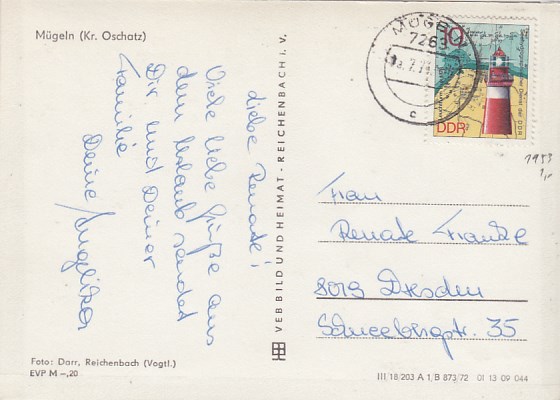 Mügeln (Kr. Oschatz)
liebe Renate!
Viele liebe Grüße aus
dem Urlaub sendet
Dir und Deiner
Familie
Deine Angelika
VEB BILD UND HEIMAT · REICHENBACH i. V.
MÜGELN
7263
c
10
DDR
1953
1,-
Frau
Renate Franke
8019 Dresden
Schneebergstr. 35
Foto: Darr, Reichenbach (Vogtl.)
EVP M –,20
III 18/203 A 1/B 873/72 01 13 09 044